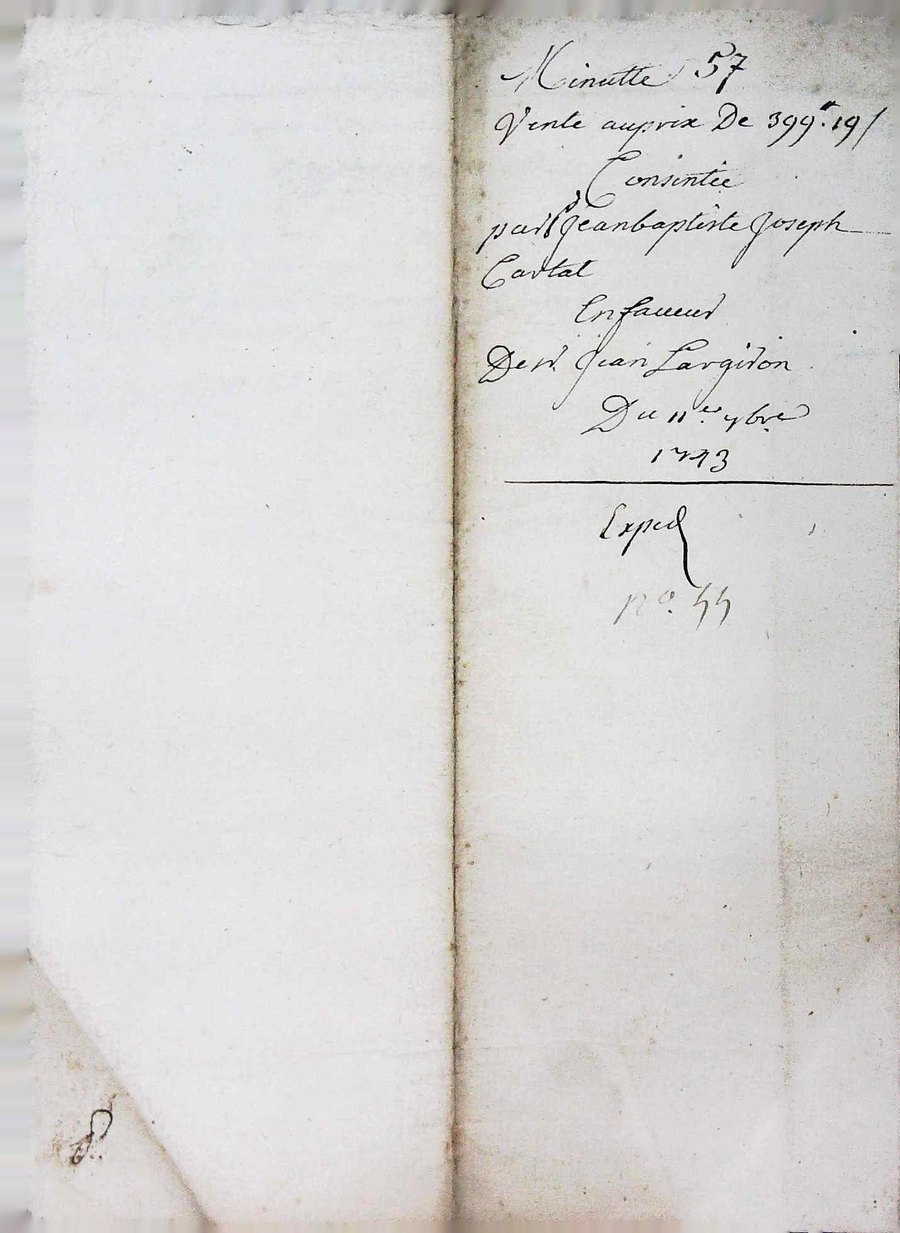 Minutte 57
Vente au prix De 399.tt 19 s
Consintée
par Sr Jeanbaptiste Joseph
Cartal
En faueur
De sr. Jean Largiron
Du 11.er 7bre
1743
Exped
no. 55